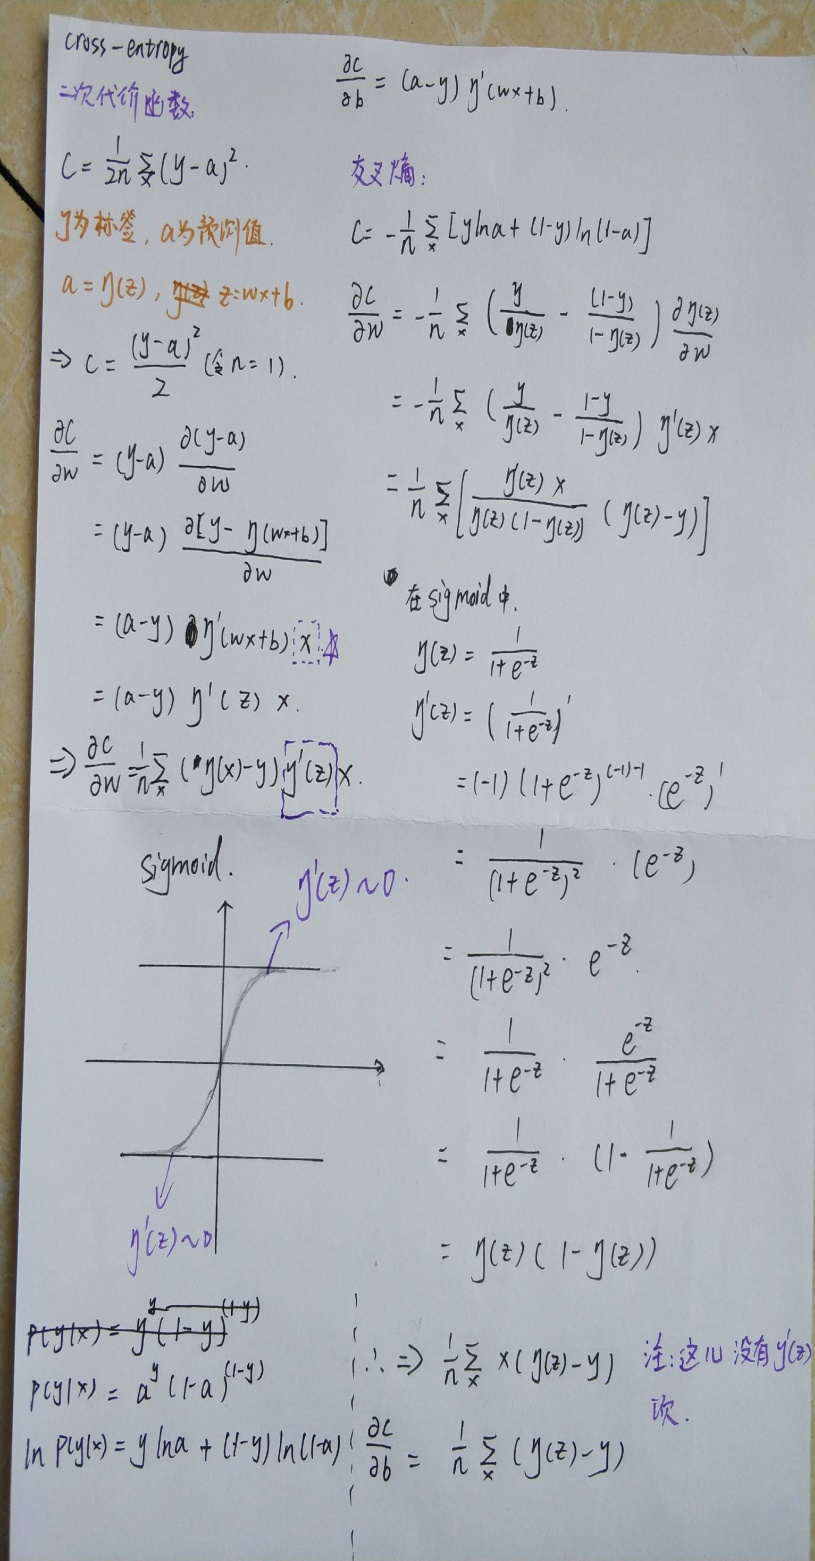 cross-entropy
二次代价函数:
C = \frac{1}{2n} \sum_x (y-a)^2.
y为标签, a为预测值.
a = η(z), z=wx+b.
⇒ C = \frac{(y-a)^2}{2} (令 n=1).
\frac{∂C}{∂w} = (y-a) \frac{∂(y-a)}{∂w}
= (y-a) \frac{∂[y-η(wx+b)]}{∂w}
= (a-y) η'(wx+b) x
= (a-y) η'(z) x.
⇒ \frac{∂C}{∂w} = \frac{1}{n} \sum_x (η(x)-y) η'(z) x.
sigmoid.
η'(z)~0.
η'(z)~0
~~p(y|x) = y^y (1-y)^{(1-y)}~~
p(y|x) = a^y (1-a)^{(1-y)}
ln p(y|x) = y ln a + (1-y) ln(1-a)
\frac{∂C}{∂b} = (a-y) η'(wx+b).
交叉熵:
C = -\frac{1}{n} \sum_x [y ln a + (1-y) ln(1-a)]
\frac{∂C}{∂w} = -\frac{1}{n} \sum_x (\frac{y}{η(z)} - \frac{(1-y)}{1-η(z)}) \frac{∂η(z)}{∂w}
= -\frac{1}{n} \sum_x (\frac{y}{η(z)} - \frac{1-y}{1-η(z)}) η'(z) x
= \frac{1}{n} \sum_x [\frac{η'(z) x}{η(z)(1-η(z))} (η(z)-y)]
在sigmoid中.
η(z) = \frac{1}{1+e^{-z}}
η'(z) = (\frac{1}{1+e^{-z}})'
= (-1) (1+e^{-z})^{(-1)-1} · (e^{-z})'
= \frac{1}{(1+e^{-z})^2} · (e^{-z})
= \frac{1}{(1+e^{-z})^2} · e^{-z}.
= \frac{1}{1+e^{-z}} · \frac{e^{-z}}{1+e^{-z}}
= \frac{1}{1+e^{-z}} · (1 - \frac{1}{1+e^{-z}})
= η(z)(1-η(z))
∴ ⇒ \frac{1}{n} \sum_x x(η(z)-y)
注:这儿没有η'(z)
项.
\frac{∂C}{∂b} = \frac{1}{n} \sum_x (η(z)-y)